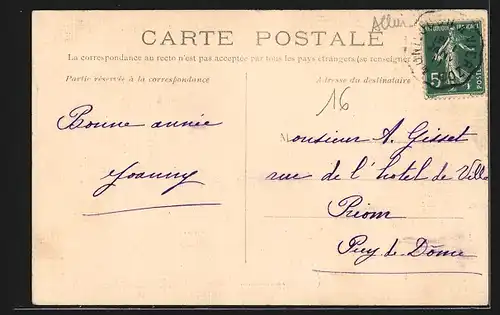 CARTE POSTALE
La correspondance au recto n'est pas acceptée par tous les pays étrangers (se renseigner
Partie réservée à la correspondance
Adresse du destinataire
16
5
POSTES
Bonne année
Joanny
Monsieur A. Gisset
rue de l'hotel de Ville
Riom
Puy de Dôme